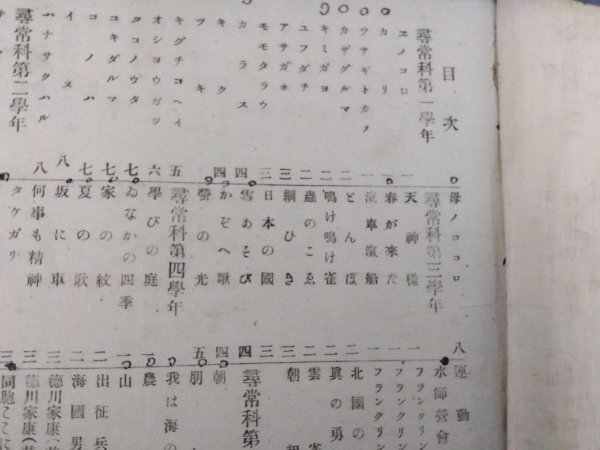 目次
尋常科第一學年
ヱノコロ
カリ
ウサギトカメ 一
カザグルマ 二
キミガヨ 二
ユフダチ 二
アサガホ 三
モモタラウ 三
カラス 四
キク 四
ツキ
キグチコヘイ 五
オシヨウガツ 六
タコノウタ 七
ユキダルマ 七
コノハ 七
イヌ 八
ハナサクハル 八
尋常科第二學年
母ノココロ
尋常科第三學年
天神樣 一
春が來た 一
滊車滊船 一
とんぼ 二
鳴け鳴け雀 二
蟲のこゑ 二
綱ひき 三
日本の國 三
雪あそび 四
かぞへ歌 四
螢の光 五
尋常科第四學年
學びの庭 一
ゐなかの四季 一
家の紋 二
夏の歌 二
坂に車 三
何事も精神 三
タケガリ 三
運動會
水師營
フランクリン
フランクリン
北國の
眞の勇
雲雀
朝起
尋常科第
朝
朋
我は海の
農
山
出征兵
海國男
德川家康(
德川家康(
同胞ここに